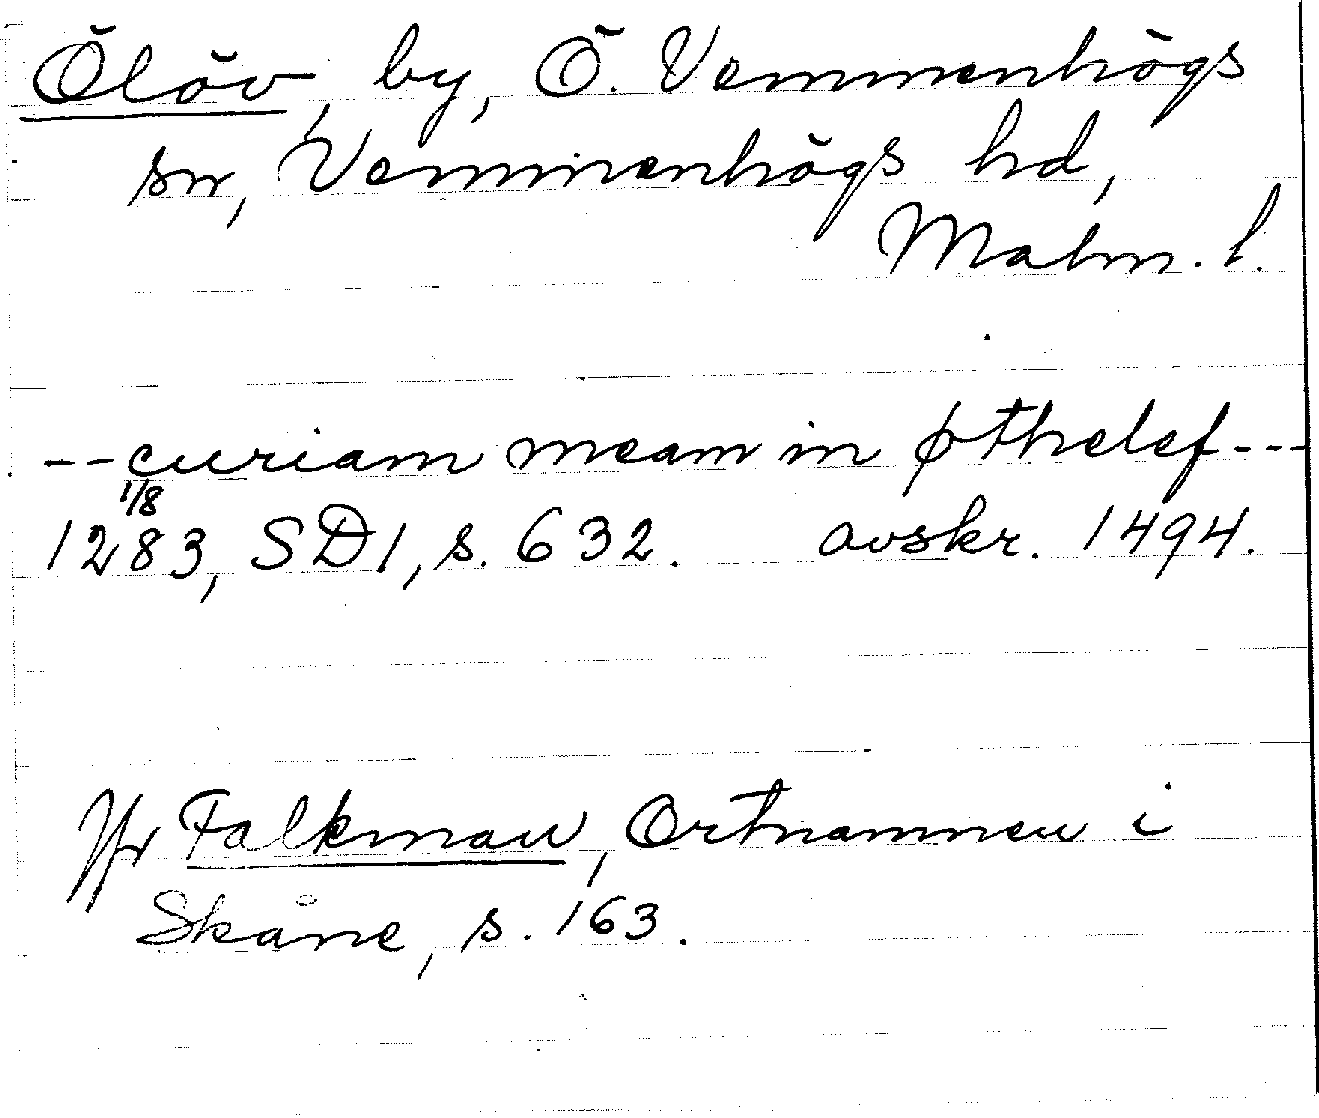 Ölöv, by, Ö. Vemmenhögs
sn, Vemmenhögs hd,
Malm. l.
--curiam meam in øthelef---
1/8
1283, SD1, s. 632. avskr. 1494.
Jfr Falkman, Ortnamnen i
Skåne, s. 163.